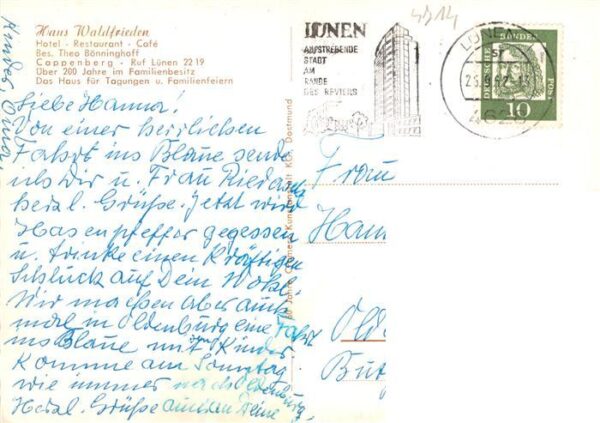 Haus Waldfrieden
Hotel - Restaurant - Café
Bes. Theo Bönninghoff
Cappenberg - Ruf Lünen 22 19
Über 200 Jahre im Familienbesitz
Das Haus für Tagungen u. Familienfeiern
Liebe Hanna!
Von einer herrlichen
Fahrt ins Blaue sende
ich Dir u. Frau
herzl. Grüße. Jetzt wird
Hasenpfeffer gegessen
u. trinke einen kräftigen
Schluck auf Dein Wohl.
Wir machen aber auch
mal in Oldenburg eine Fahrt
ins Blaue mit Kinder
Komme am Sonntag
wie immer nach Oldenburg.
Herzl. Grüße
LÜNEN
AUFSTREBENDE
STADT
AM
RANDE
DES REVIERS
4914
LÜNEN
462
DEUTSCHE BUNDESPOST
10
Cramers Kunstanstalt KG, Dortmund
Frau
Hann
Olde